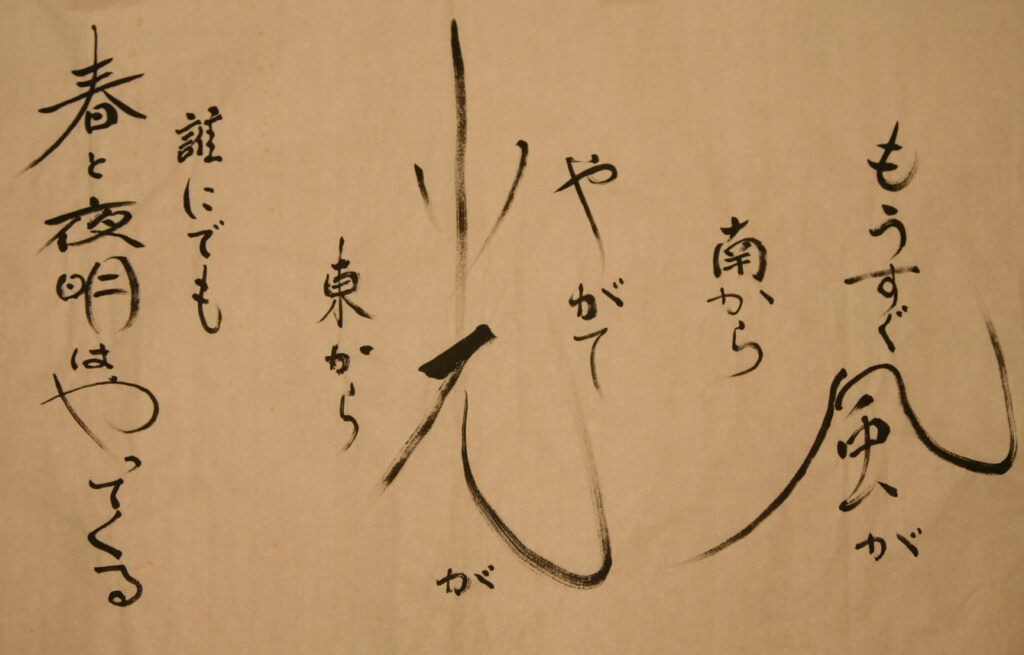 もうすぐ風が
南から
やがて
光が
東から
誰にでも
春と夜明はやってくる